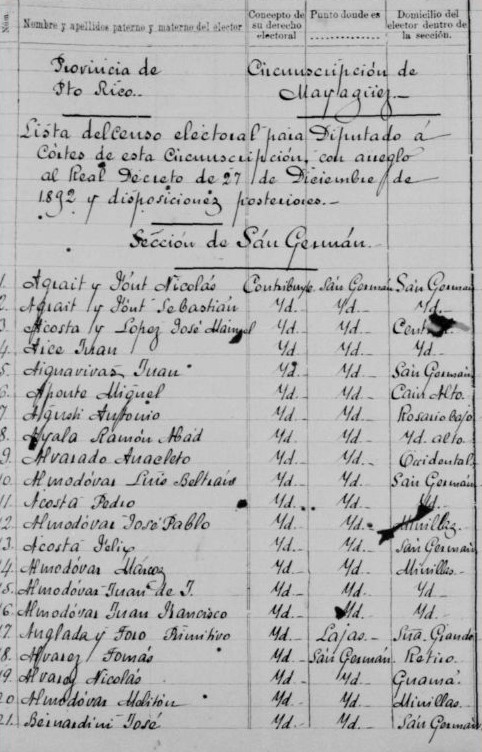 Núm. Nombre y apellidos paterno y materno del elector Concepto de su derecho electoral Punto donde es .......... Domicilio del elector dentro de la sección.
Provincia de Circunscripción de
Pto Rico.. Mayagüez.-
Lista del censo electoral para Diputado á
Córtes de esta Circunscripción, con arreglo
al Real Decreto de 27 de Diciembre de
1892 y disposiciones posteriores.-
Sección de Sán Germán.
1. Agrait y Font Nicolás Contribuye. Sán Germán Sán Germán
2. Agrait y Font Sebastián Yd. Yd. Yd.
3. Acosta y López José Manuel Yd. Yd.
4. Juan Yd. Yd. Yd.
5. Juan Yd. Yd. Sán Germán
6. Aponte Miguel Yd. Yd. Cain Alto.
7. Antonio Yd. Yd. Rosario bajo
8. Ayala Ramón Abad Yd. Yd. Yd. alto
9. Alvarado Anacleto Yd. Yd. Occidental
10. Almodóvar Luis Beltrán Yd. Yd. Sán Germán
11. Acosta Pedro Yd. Yd. Yd.
12. Almodóvar José Pablo Yd. Yd. Minillas
13. Acosta Felix Yd. Yd. Sán Germán
14. Almodóvar Márcos Yd. Yd. Minillas.
15. Almodóvar Juan de J. Yd. Yd. Yd
16. Almodóvar Juan Francisco Yd. Yd. Yd.
17. Anglada y Toro Primitivo Yd. Lajas. Stra. Grande
18. Alvarez Tomás Yd. Sán Germán Retiro.
19. Alvarez Nicolás Yd. Yd. Guamá.
20. Almodóvar Melitón Yd. Yd. Minillas.
21. Bernardini José Yd. Yd. Sán Germán